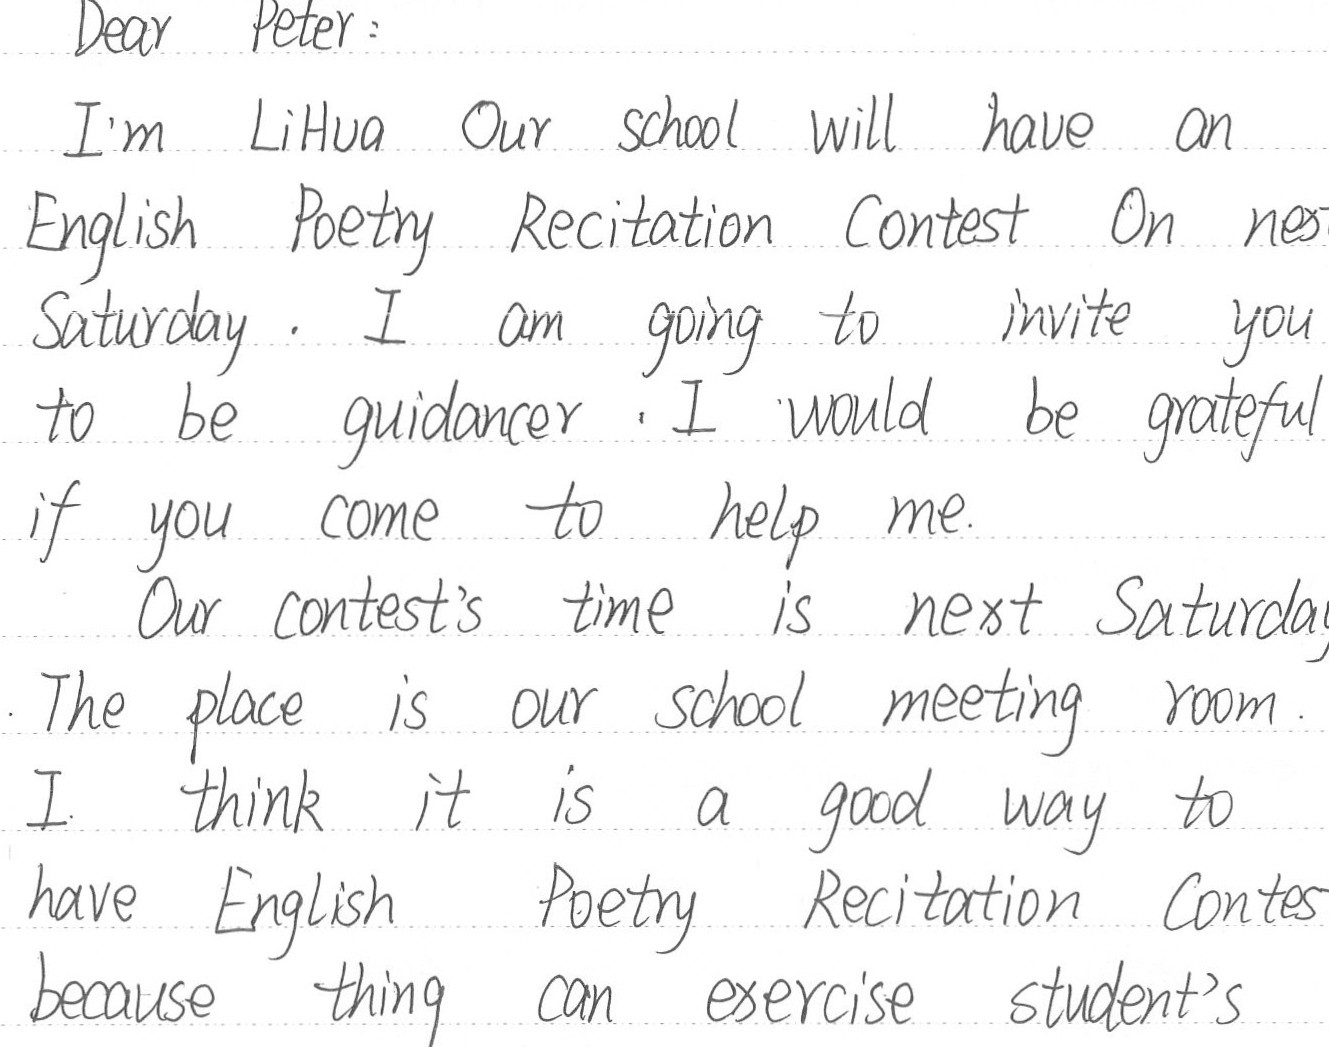 Dear Peter:
I'm LiHua Our school will have an
English Poetry Recitation Contest On nex
Saturday. I am going to invite you
to be guidancer. I would be grateful
if you come to help me.
Our contest's time is next Saturday
. The place is our school meeting room.
I think it is a good way to
have English Poetry Recitation Contes
because thing can exercise student's